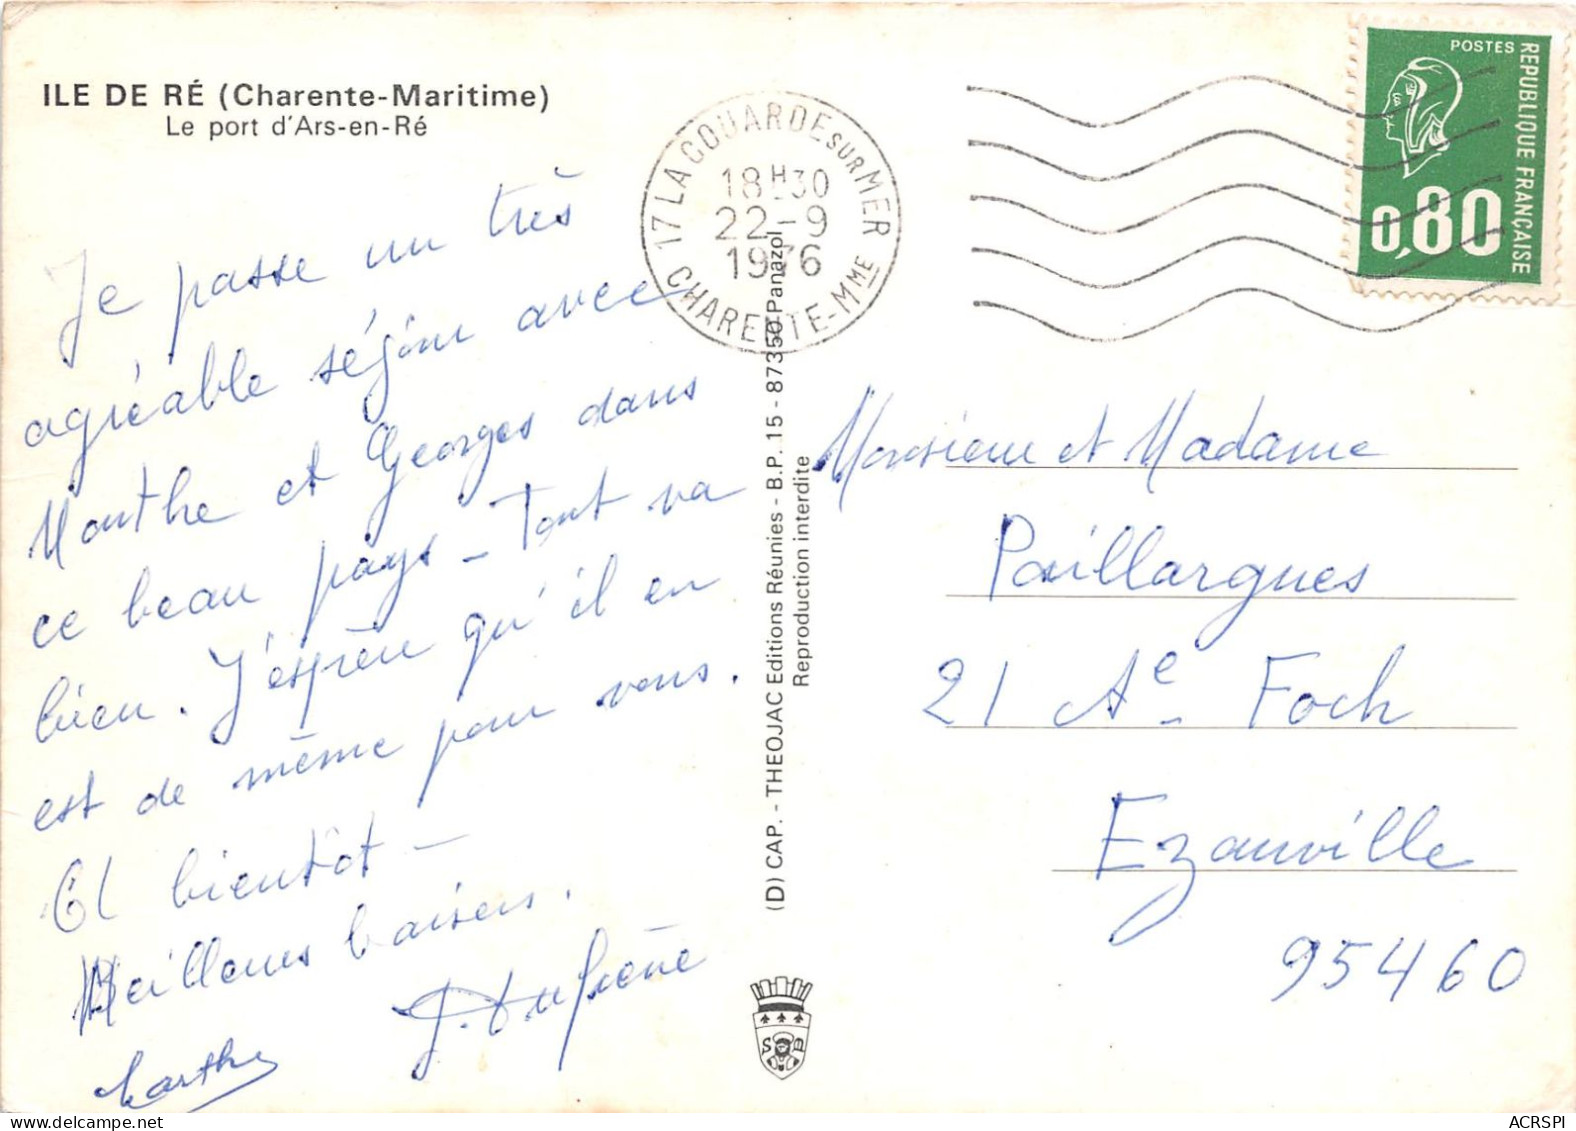 ILE DE RÉ (Charente-Maritime)
Le port d'Ars-en-Ré
Je passe un très
agréable séjour avec
Marthe et Georges dans
ce beau pays - Tout va
bien. J'espère qu'il en
est de même pour vous.
A bientôt -
Meilleurs baisers.
J. Dufrène
Marthe
17 LA COUARDE SUR MER
18H30
22-9
1976
CHARENTE-MME
POSTES
REPUBLIQUE FRANÇAISE
0,80
(D) CAP. - THEOJAC Editions Réunies - B.P. 15 - 87350 Panazol
Reproduction interdite
Monsieur et Madame
Paillargues
21 Ae Foch
Ezanville
95460
S D
ACRSPI